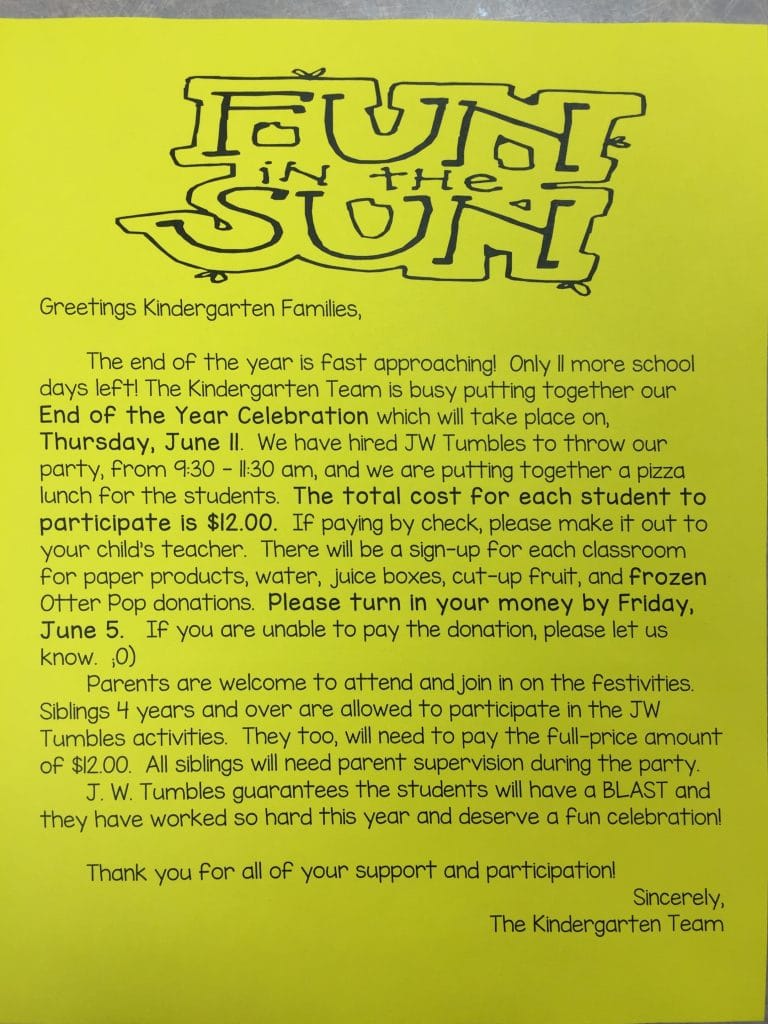 FUN
in the
SUN
Greetings Kindergarten Families,
The end of the year is fast approaching! Only 11 more school
days left! The Kindergarten Team is busy putting together our
End of the Year Celebration which will take place on,
Thursday, June 11. We have hired JW Tumbles to throw our
party, from 9:30 - 11:30 am, and we are putting together a pizza
lunch for the students. The total cost for each student to
participate is $12.00. If paying by check, please make it out to
your child's teacher. There will be a sign-up for each classroom
for paper products, water, juice boxes, cut-up fruit, and frozen
Otter Pop donations. Please turn in your money by Friday,
June 5. If you are unable to pay the donation, please let us
know. ;0)
Parents are welcome to attend and join in on the festivities.
Siblings 4 years and over are allowed to participate in the JW
Tumbles activities. They too, will need to pay the full-price amount
of $12.00. All siblings will need parent supervision during the party.
J. W. Tumbles guarantees the students will have a BLAST and
they have worked so hard this year and deserve a fun celebration!
Thank you for all of your support and participation!
Sincerely,
The Kindergarten Team